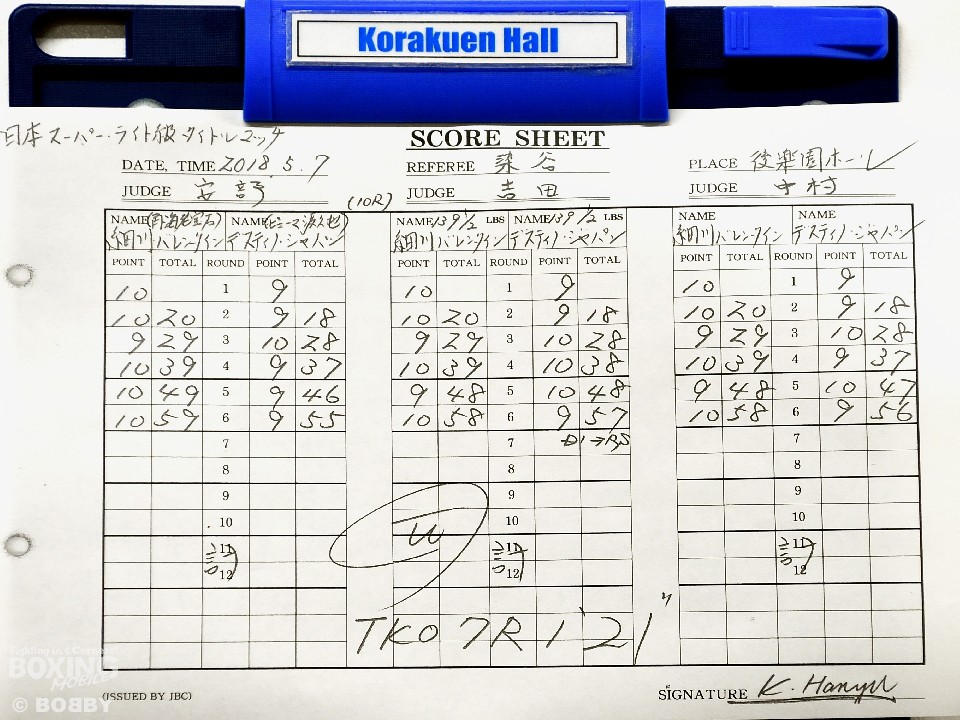 Korakuen Hall
日本スーパー・ライト級タイトルマッチ
SCORE SHEET
DATE, TIME 2018.5.7 REFEREE 染谷 PLACE 後楽園ホール
JUDGE 安部 (10R) JUDGE 吉田 JUDGE 中村
NAME NAME NAME 139 1/2 LBS NAME 139 1/2 LBS NAME NAME
細川バレンタイン デスティノ・ジャパン 細川バレンタイン デスティノ・ジャパン 細川バレンタイン デスティノ・ジャパン
POINT TOTAL ROUND POINT TOTAL POINT TOTAL ROUND POINT TOTAL POINT TOTAL ROUND POINT TOTAL
10 1 9 10 1 9 10 1 9
10 20 2 9 18 10 20 2 9 18 10 20 2 9 18
9 29 3 10 28 9 29 3 10 28 9 29 3 10 28
10 39 4 9 37 10 39 4 10 38 10 39 4 9 37
10 49 5 9 46 9 48 5 10 48 9 48 5 10 47
10 59 6 9 55 10 58 6 9 57 10 58 6 9 56
7 7 7
8 8 8
9 9 9
10 W 10 10
11 11 11
12 12 12
TKO 7R 1'21"
BOXING
MOBILE
© BOBBY
(ISSUED BY JBC) SIGNATURE K. Hanyu